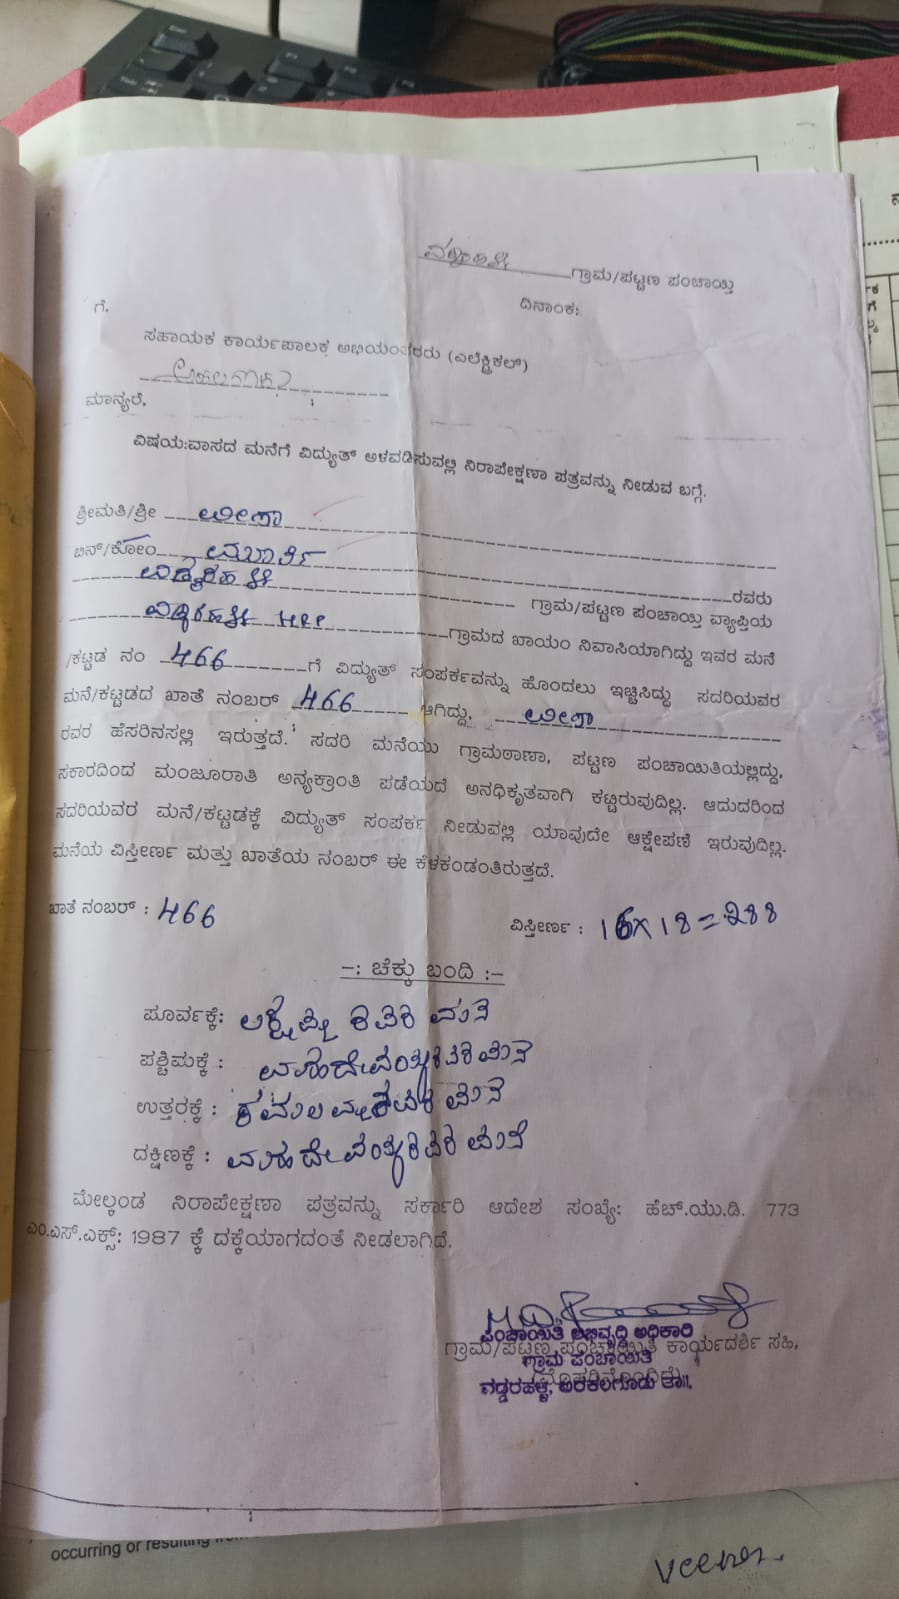 ಗ್ರಾಮ/ಪಟ್ಟಣ ಪಂಚಾಯ್ತಿ
ದಿನಾಂಕ:
ಗೆ,
ಸಹಾಯಕ ಕಾರ್ಯಪಾಲಕ ಅಭಿಯಂತರರು (ಎಲೆಕ್ಟ್ರಿಕಲ್)
ಮಾನ್ಯರೆ,
ವಿಷಯ:ವಾಸದ ಮನೆಗೆ ವಿದ್ಯುತ್ ಅಳವಡಿಸುವಲ್ಲಿ ನಿರಾಪೇಕ್ಷಣಾ ಪತ್ರವನ್ನು ನೀಡುವ ಬಗ್ಗೆ.
ಶ್ರೀಮತಿ/ಶ್ರೀ ವೀಣಾ
ಬಿನ್/ಕೋಂ ಮೂರ್ತಿ ರವರು
ಗ್ರಾಮ/ಪಟ್ಟಣ ಪಂಚಾಯ್ತಿ ವ್ಯಾಪ್ತಿಯ
ಗ್ರಾಮದ ಖಾಯಂ ನಿವಾಸಿಯಾಗಿದ್ದು ಇವರ ಮನೆ
/ಕಟ್ಟಡ ನಂ 466 ಗೆ ವಿದ್ಯುತ್ ಸಂಪರ್ಕವನ್ನು ಹೊಂದಲು ಇಚ್ಚಿಸಿದ್ದು ಸದರಿಯವರ
ಮನೆ/ಕಟ್ಟಡದ ಖಾತೆ ನಂಬರ್ 466 ಆಗಿದ್ದು, ವೀಣಾ
ರವರ ಹೆಸರಿನಸಲ್ಲಿ ಇರುತ್ತದೆ. ಸದರಿ ಮನೆಯು ಗ್ರಾಮಠಾಣಾ, ಪಟ್ಟಣ ಪಂಚಾಯಿತಿಯಲ್ಲಿದ್ದು,
ಸಕಾರದಿಂದ ಮಂಜೂರಾತಿ ಅನ್ಯಕ್ರಾಂತಿ ಪಡೆಯದೆ ಅನಧಿಕೃತವಾಗಿ ಕಟ್ಟಿರುವುದಿಲ್ಲ. ಆದುದರಿಂದ
ಸದರಿಯವರ ಮನೆ/ಕಟ್ಟಡಕ್ಕೆ ವಿದ್ಯುತ್ ಸಂಪರ್ಕ ನೀಡುವಲ್ಲಿ ಯಾವುದೇ ಆಕ್ಷೇಪಣೆ ಇರುವುದಿಲ್ಲ.
ಮನೆಯ ವಿಸ್ತೀರ್ಣ ಮತ್ತು ಖಾತೆಯ ನಂಬರ್ ಈ ಕೆಳಕಂಡಂತಿರುತ್ತದೆ.
ಖಾತೆ ನಂಬರ್ : 466
ವಿಸ್ತೀರ್ಣ : 16x18=288
-: ಚೆಕ್ಕು ಬಂದಿ :-
ಪೂರ್ವಕ್ಕೆ: ಮನೆ
ಪಶ್ಚಿಮಕ್ಕೆ : ಮನೆ
ಉತ್ತರಕ್ಕೆ : ಮನೆ
ದಕ್ಷಿಣಕ್ಕೆ : ಮನೆ
ಮೇಲ್ಕಂಡ ನಿರಾಪೇಕ್ಷಣಾ ಪತ್ರವನ್ನು ಸರ್ಕಾರಿ ಆದೇಶ ಸಂಖ್ಯೆ: ಹೆಚ್.ಯು.ಡಿ. 773
ಎಂ.ಎಸ್.ಎಕ್ಸ್: 1987 ಕ್ಕೆ ದಕ್ಕೆಯಾಗದಂತೆ ನೀಡಲಾಗಿದೆ.
ಪಂಚಾಯಿತಿ ಅಭಿವೃದ್ಧಿ ಅಧಿಕಾರಿ
ಗ್ರಾಮ/ಪಟ್ಟಣ ಪಂಚಾಯಿತಿ ಕಾರ್ಯದರ್ಶಿ ಸಹಿ,
ಗ್ರಾಮ ಪಂಚಾಯಿತಿ
ವಡ್ಡರಹಳ್ಳಿ, ಅರಕಲಗೂಡು ತಾ||.
occurring or resulting